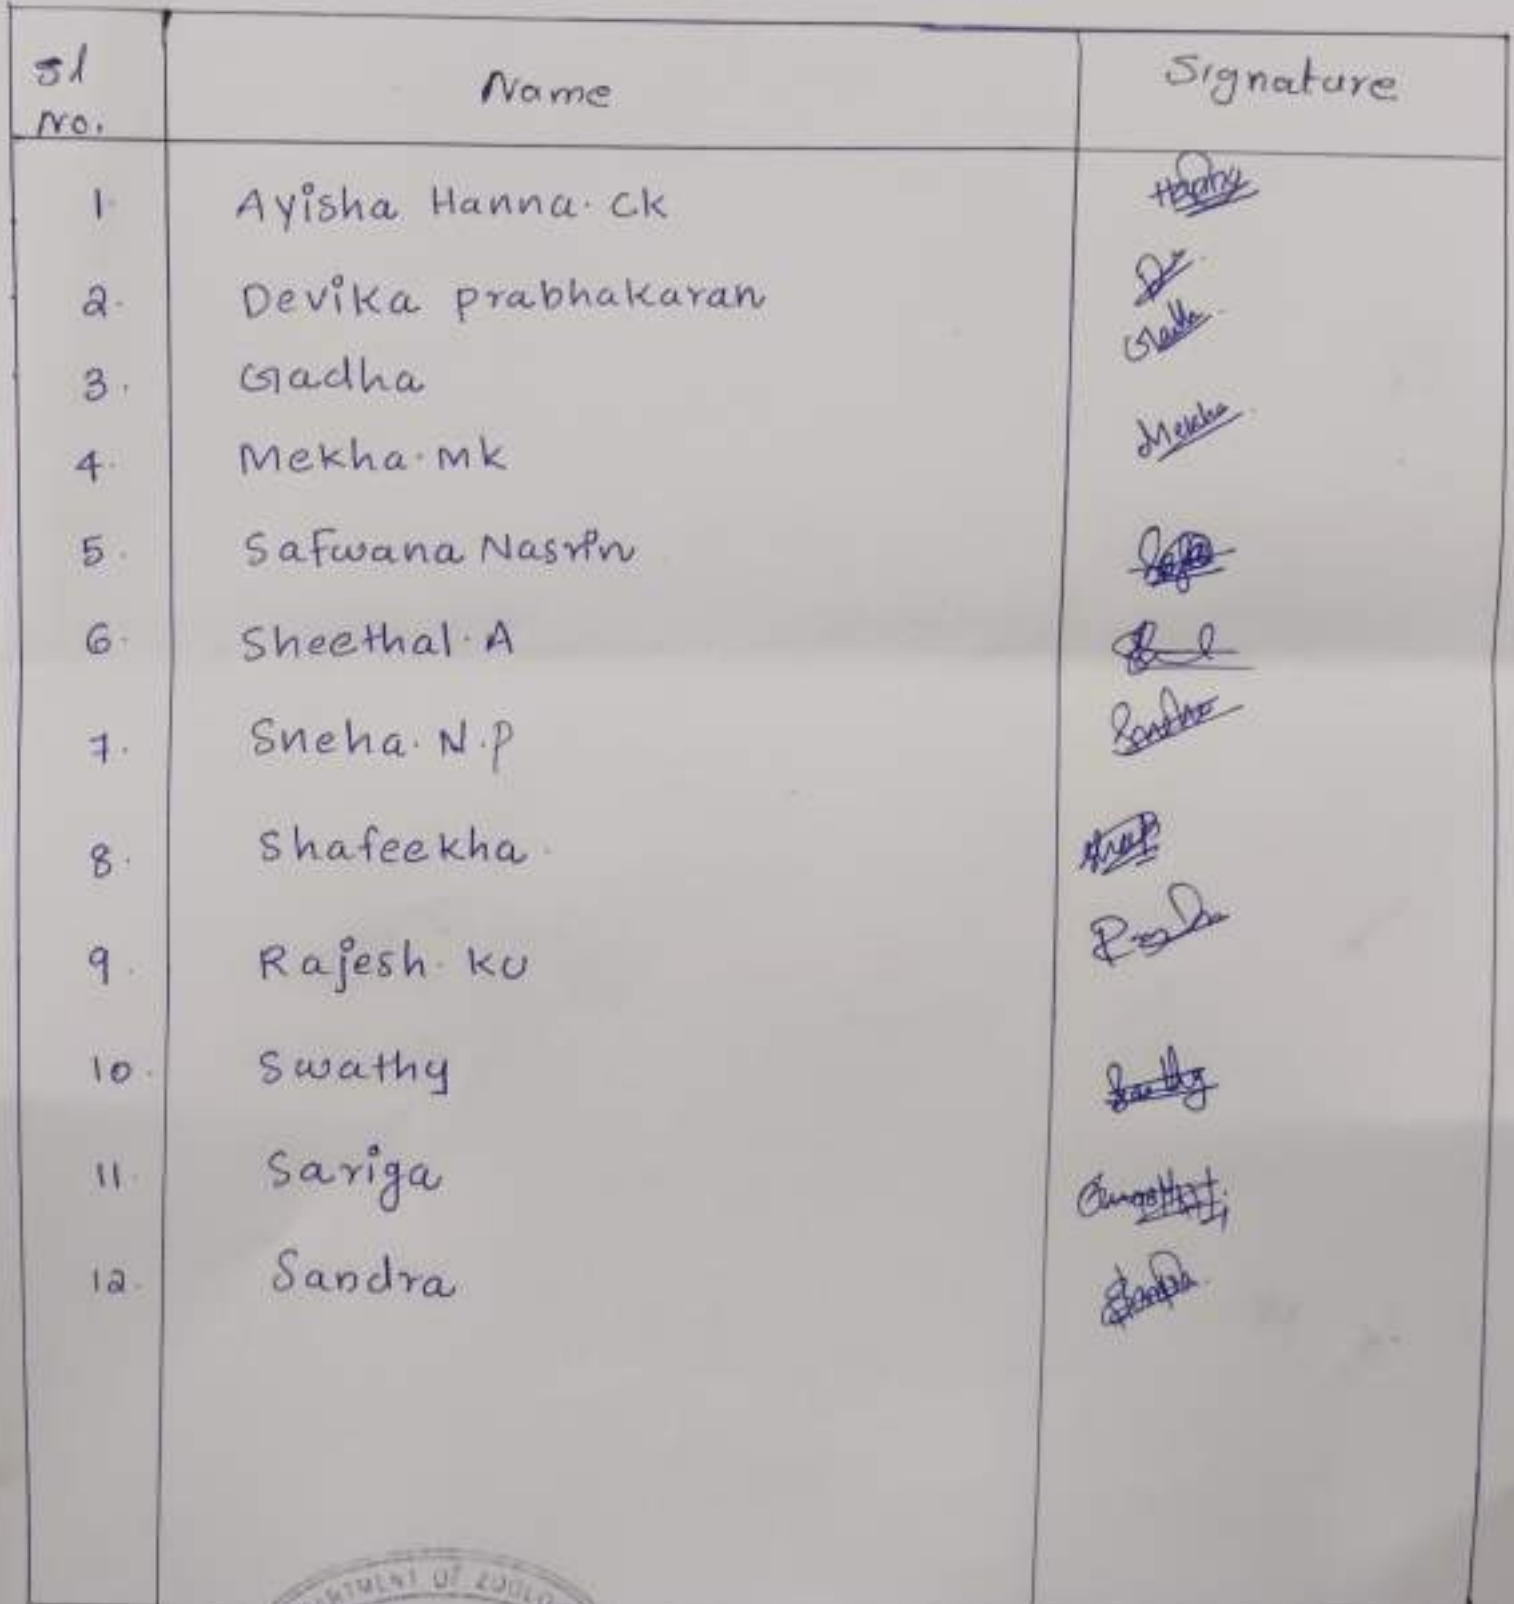 Sl No. Name Signature
1. Ayisha Hanna. CK
2. Devika prabhakaran
3. Gadha Gadha
4. Mekha. MK Mekha
5. Safwana Nasrin
6. Sheethal. A
7. Sneha. N.P
8. Shafeekha.
9. Rajesh. KU
10. Swathy Swathy
11. Sariga
12. Sandra Sandra
ARTMENT OF ZOOLO